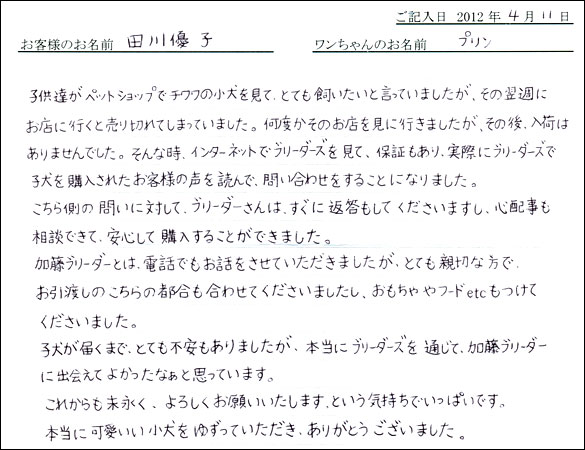 ご記入日 2012年 4月 11日
お客様のお名前 田川優子 ワンちゃんのお名前 プリン
子供達がペットショップでチワワの小犬を見て、とても飼いたいと言っていましたが、その翌週に
お店に行くと売り切れてしまっていました。何度かそのお店を見に行きましたが、その後、入荷は
ありませんでした。そんな時、インターネットでブリーダーズを見て、保証もあり、実際にブリーダーズで
子犬を購入されたお客様の声を読んで、問い合わせをすることになりました。
こちら側の問いに対して、ブリーダーさんは、すぐに返答もしてくださいますし、心配事も
相談できて、安心して購入することができました。
加藤ブリーダーとは、電話でもお話をさせていただきましたが、とても親切な方で、
お引渡しのこちらの都合も合わせてくださいましたし、おもちゃやフードetcもつけて
くださいました。
子犬が届くまで、とても不安もありましたが、本当にブリーダーズを通じて、加藤ブリーダー
に出会えてよかったなぁと思っています。
これからも末永く、よろしくお願いいたします、という気持ちでいっぱいです。
本当に可愛いい小犬をゆずっていただき、ありがとうございました。